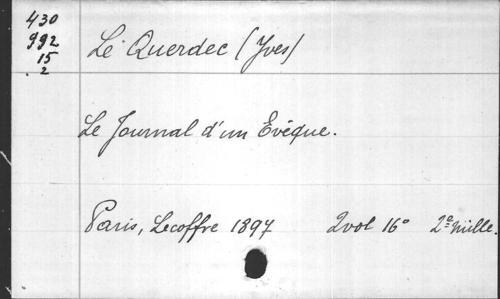 430
992
15
2
Le Querdec (Yves)
Le Journal d'un Evêque.
Paris, Lecoffre 1897 2 vol 16° 2e mille.